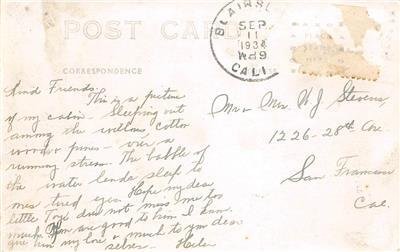 POST CARD
CORRESPONDENCE
BLAIRS
SEP
11
1934
CALI
Kind Friends:
This is a picture
of my cabin. Sleeping out
among the willows, cotton
wood & pines - over a
running stream. The babble of
the water lends sleep to
ones tired eyes. Hope my dear
little Toys does not miss me too
much. You are good to him I know.
give him my love & much to you dear
selves. Helen
Mr & Mrs W J Stevens
1226-28th Ave.
San Francisco
Cal.